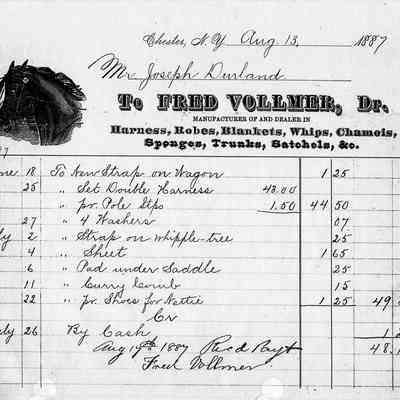 Chester, N.Y. Aug 13, 1887
Mr Joseph Durland
To FRED VOLLMER, Dr.
MANUFACTURER OF AND DEALER IN
Harness, Robes, Blankets, Whips, Chamois,
Sponges, Trunks, Satchels, &c.
18 To New Strap on Wagon 1 25
25 " Set Double Harness 43.00
" pr. Pole Stps 1.50 44 50
27 " 4 Washers 07
2 " Strap on whipple-tree 25
4 " Sheet 1 65
6 " Pad under Saddle 25
11 " Curry Comb 15
22 " pr. Shoes for Nettie 1 25 49
Cr
26 By Cash 1
Aug 19th 1887 Recd Payt 48.
Fred Vollmer